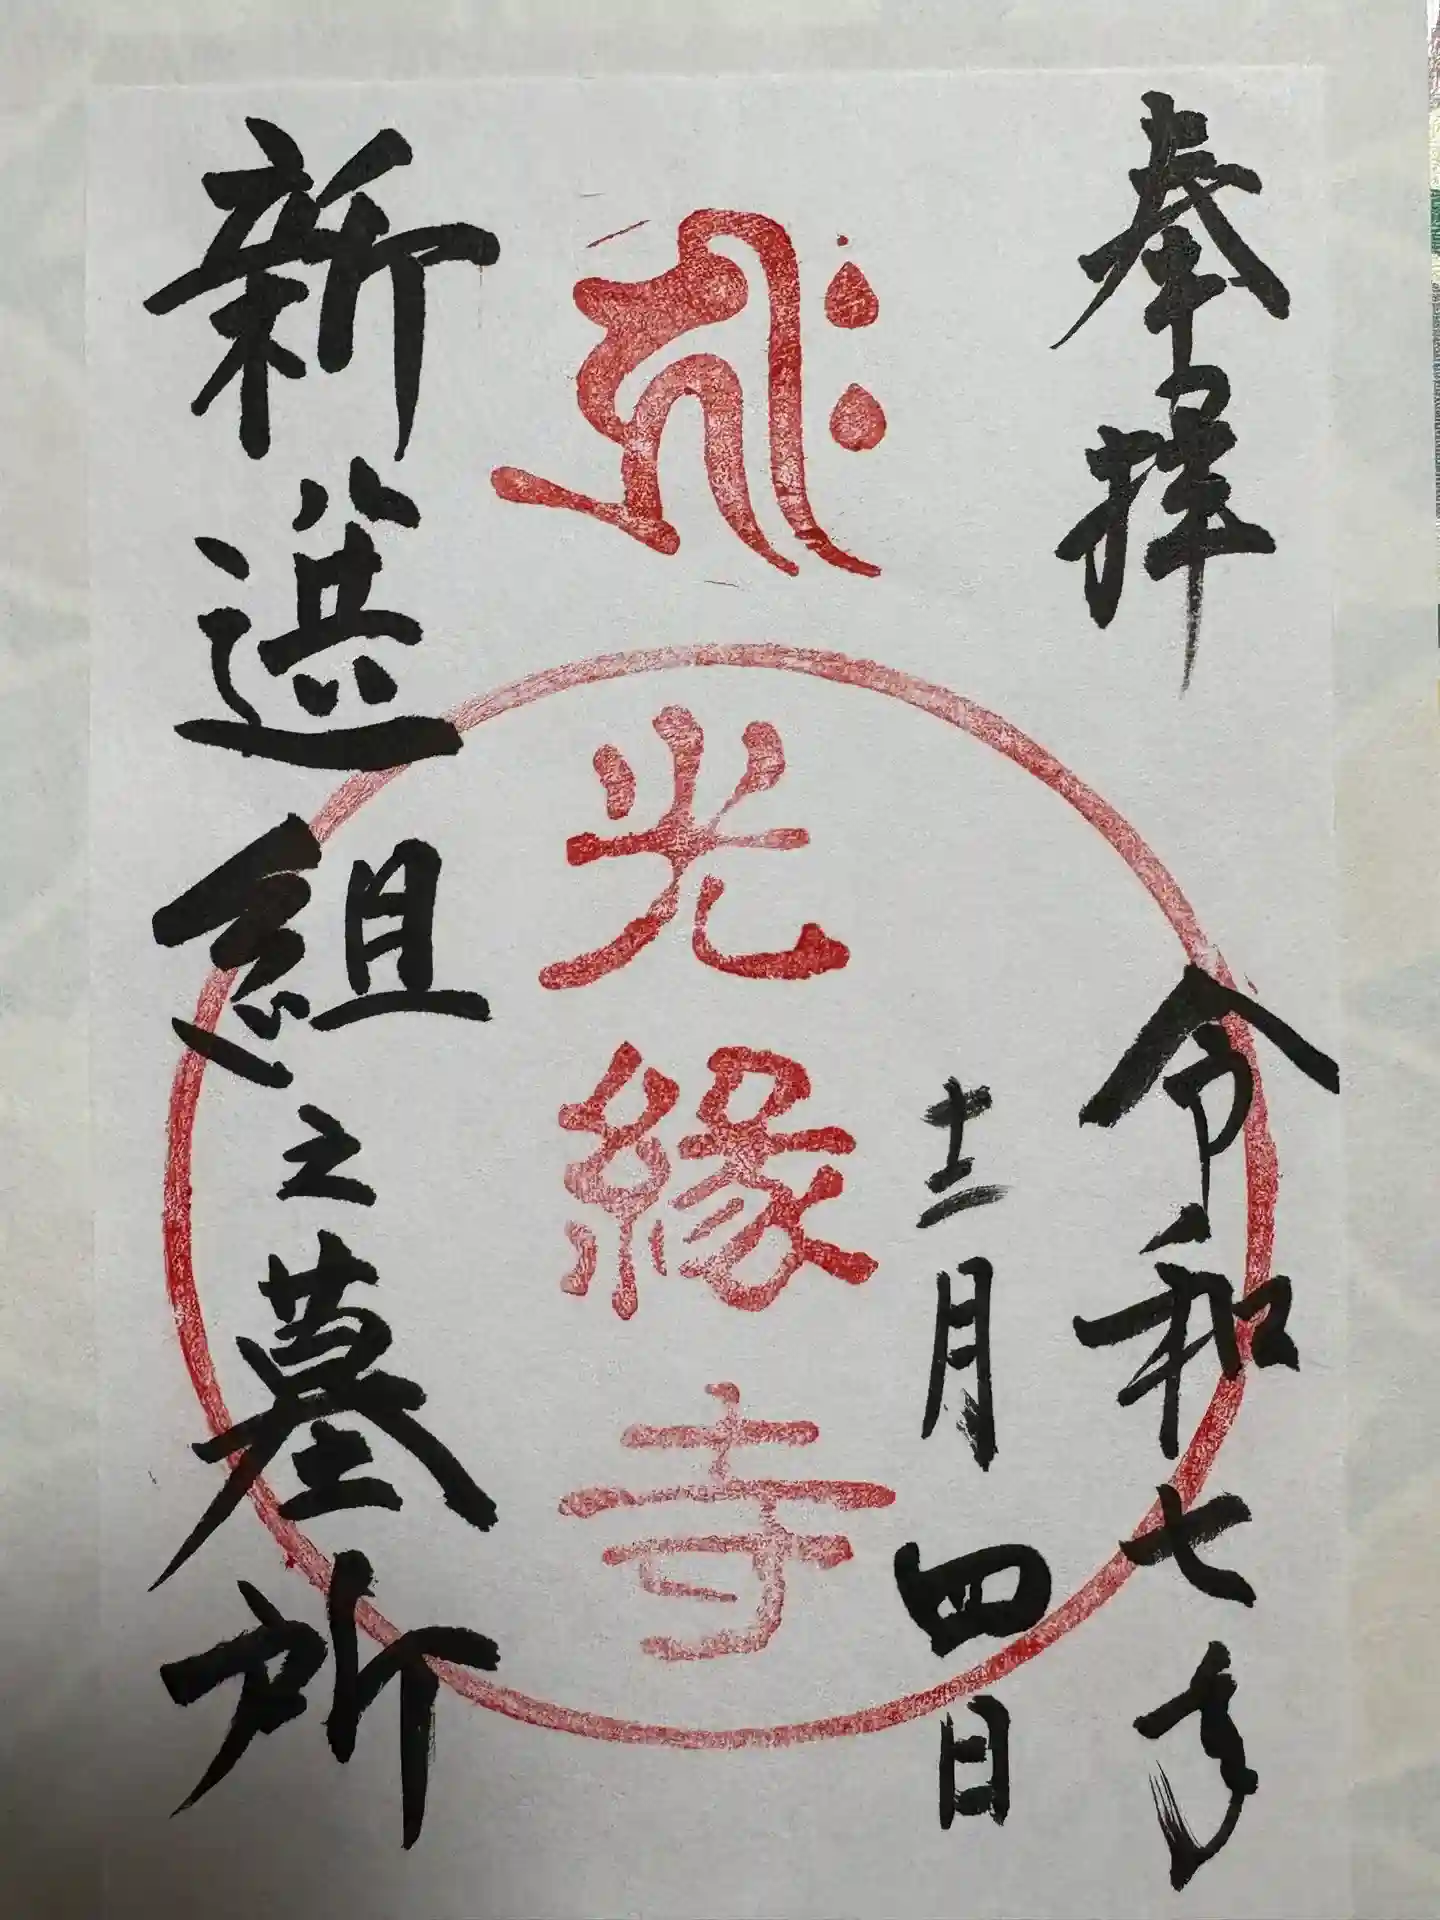 奉拝
令和七年
十二月四日
𑖮𑖿𑖨𑖱𑖾
光縁寺
新選組之墓所